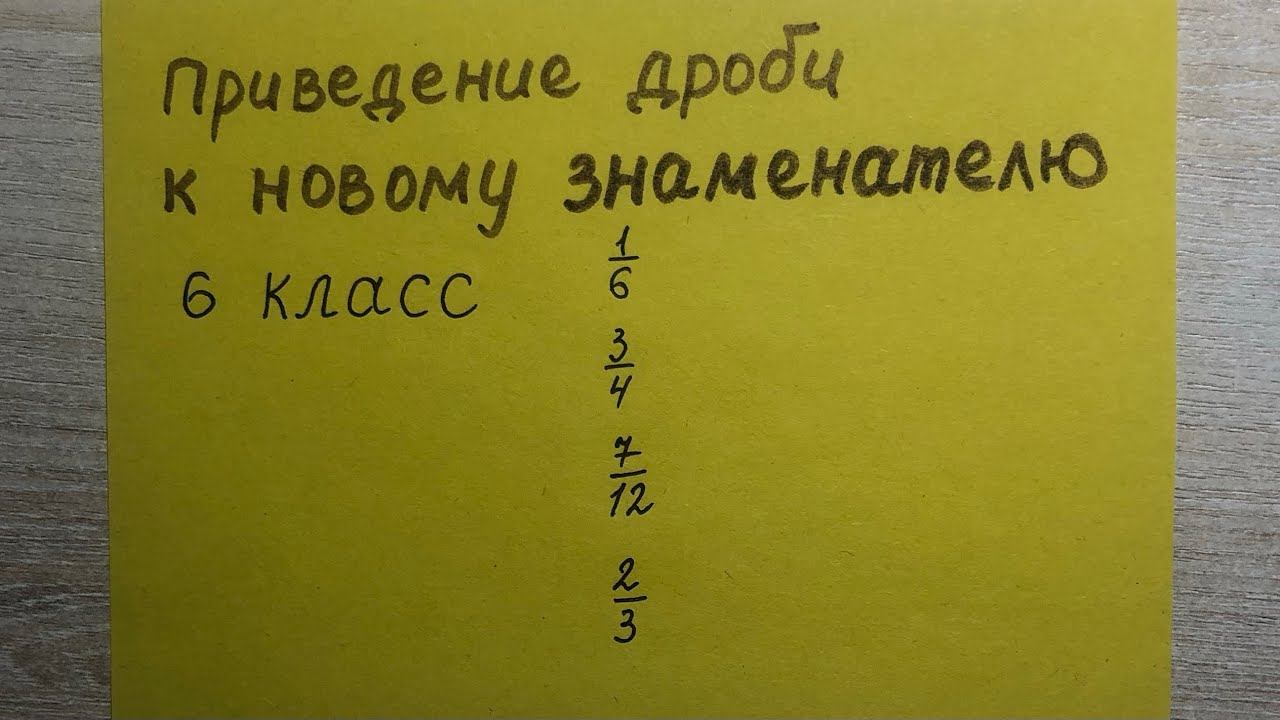 Приведение дроби
к новому знаменателю
6 класс
1/6
3/4
7/12
2/3